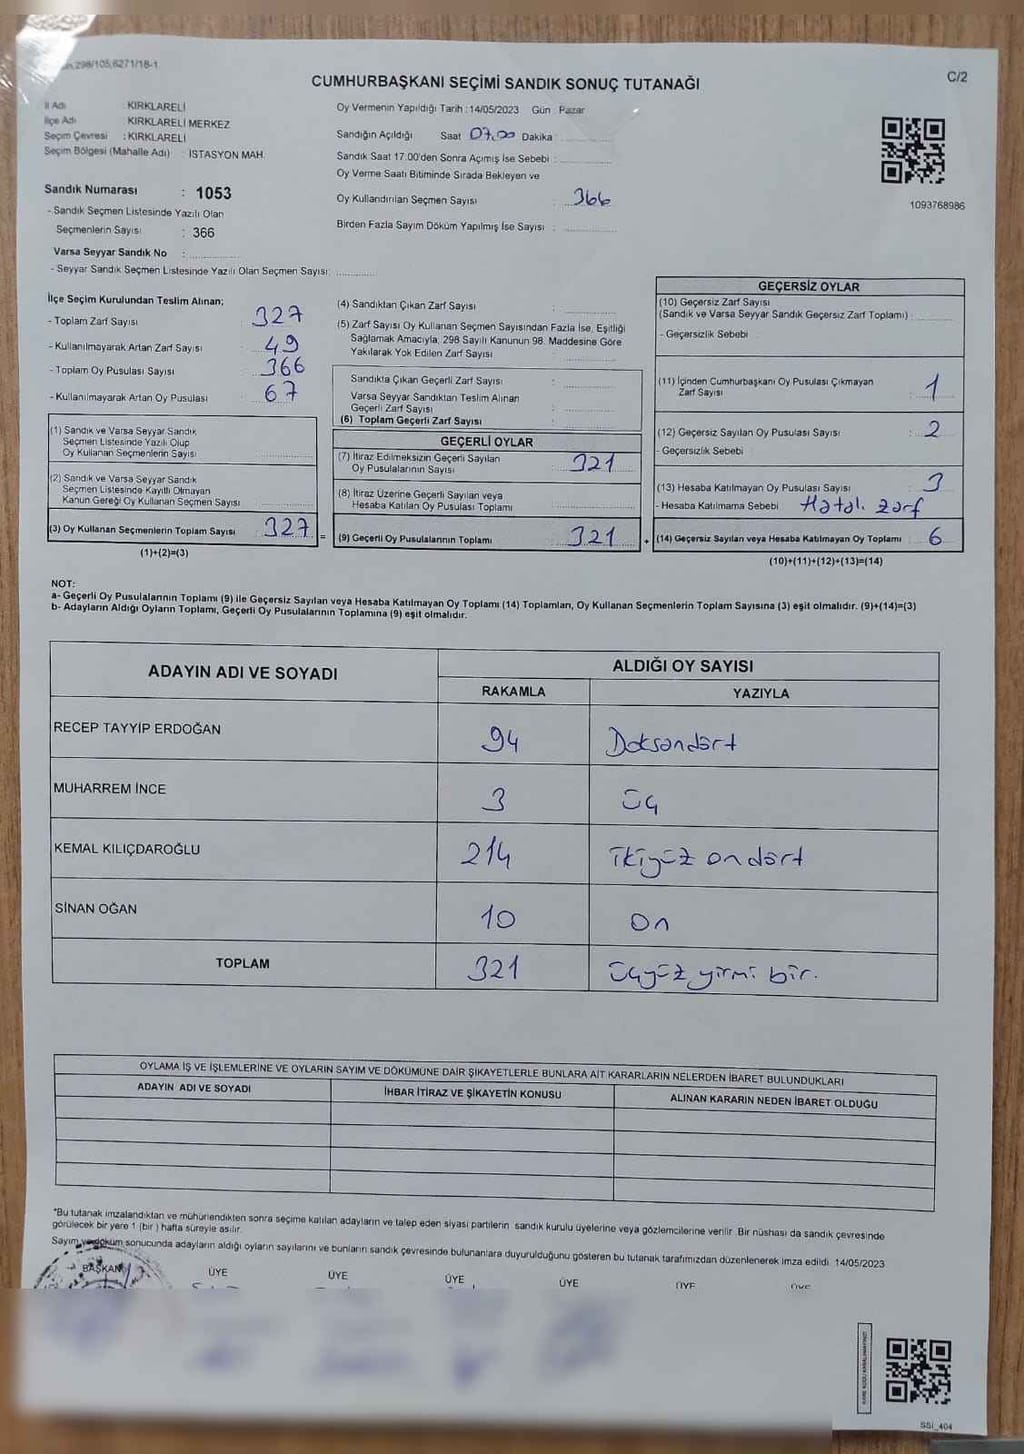 298/105,6271/18-1
CUMHURBAŞKANI SEÇİMİ SANDIK SONUÇ TUTANAĞI
C/2
İl Adı : KIRKLARELİ
İlçe Adı : KIRKLARELİ MERKEZ
Seçim Çevresi : KIRKLARELİ
Seçim Bölgesi (Mahalle Adı) : İSTASYON MAH.
Sandık Numarası : 1053
- Sandık Seçmen Listesinde Yazılı Olan
Seçmenlerin Sayısı : 366
Varsa Seyyar Sandık No :
- Seyyar Sandık Seçmen Listesinde Yazılı Olan Seçmen Sayısı:
Oy Vermenin Yapıldığı Tarih : 14/05/2023 Gün : Pazar
Sandığın Açıldığı Saat 07,00 Dakika :
Sandık Saat 17.00'den Sonra Açımış İse Sebebi :
Oy Verme Saati Bitiminde Sırada Bekleyen ve
Oy Kullandırılan Seçmen Sayısı : 366
Birden Fazla Sayım Döküm Yapılmış İse Sayısı :
1093768986
İlçe Seçim Kurulundan Teslim Alınan;
- Toplam Zarf Sayısı 327
- Kullanılmayarak Artan Zarf Sayısı : 49
- Toplam Oy Pusulası Sayısı 366
- Kullanılmayarak Artan Oy Pusulası : 67
(1) Sandık ve Varsa Seyyar Sandık
Seçmen Listesinde Yazılı Olup
Oy Kullanan Seçmenlerin Sayısı
(2) Sandık ve Varsa Seyyar Sandık
Seçmen Listesinde Kayıtlı Olmayan
Kanun Gereği Oy Kullanan Seçmen Sayısı
(3) Oy Kullanan Seçmenlerin Toplam Sayısı 327 =
(1)+(2)=(3)
(4) Sandıktan Çıkan Zarf Sayısı :
(5) Zarf Sayısı Oy Kullanan Seçmen Sayısından Fazla İse, Eşitliği
Sağlamak Amacıyla, 298 Sayılı Kanunun 98. Maddesine Göre
Yakılarak Yok Edilen Zarf Sayısı
Sandıkta Çıkan Geçerli Zarf Sayısı :
Varsa Seyyar Sandıktan Teslim Alınan
Geçerli Zarf Sayısı :
(6) Toplam Geçerli Zarf Sayısı :
GEÇERLİ OYLAR
(7) İtiraz Edilmeksizin Geçerli Sayılan
Oy Pusulalarının Sayısı 321
(8) İtiraz Üzerine Geçerli Sayılan veya
Hesaba Katılan Oy Pusulası Toplamı
(9) Geçerli Oy Pusulalarının Toplamı : 321 +
GEÇERSİZ OYLAR
(10) Geçersiz Zarf Sayısı
(Sandık ve Varsa Seyyar Sandık Geçersiz Zarf Toplamı) :
- Geçersizlik Sebebi
(11) İçinden Cumhurbaşkanı Oy Pusulası Çıkmayan
Zarf Sayısı : 1
(12) Geçersiz Sayılan Oy Pusulası Sayısı : 2
- Geçersizlik Sebebi
(13) Hesaba Katılmayan Oy Pusulası Sayısı : 3
- Hesaba Katılmama Sebebi Hatalı zarf
(14) Geçersiz Sayılan veya Hesaba Katılmayan Oy Toplamı : 6
(10)+(11)+(12)+(13)=(14)
NOT:
a- Geçerli Oy Pusulalarının Toplamı (9) ile Geçersiz Sayılan veya Hesaba Katılmayan Oy Toplamı (14) Toplamları, Oy Kullanan Seçmenlerin Toplam Sayısına (3) eşit olmalıdır. (9)+(14)=(3)
b- Adayların Aldığı Oyların Toplamı, Geçerli Oy Pusulalarının Toplamına (9) eşit olmalıdır.
ADAYIN ADI VE SOYADI
ALDIĞI OY SAYISI
RAKAMLA YAZIYLA
RECEP TAYYİP ERDOĞAN 94 Doksandört
MUHARREM İNCE 3 üç
KEMAL KILIÇDAROĞLU 214 ikiyüz ondört
SİNAN OĞAN 10 On
TOPLAM 321 üçyüz yirmi bir.
OYLAMA İŞ VE İŞLEMLERİNE VE OYLARIN SAYIM VE DÖKÜMÜNE DAİR ŞİKAYETLERLE BUNLARA AİT KARARLARIN NELERDEN İBARET BULUNDUKLARI
ADAYIN ADI VE SOYADI İHBAR İTİRAZ VE ŞİKAYETİN KONUSU ALINAN KARARIN NEDEN İBARET OLDUĞU
*Bu tutanak imzalandıktan ve mühürlendikten sonra seçime katılan adayların ve talep eden siyasi partilerin sandık kurulu üyelerine veya gözlemcilerine verilir. Bir nüshası da sandık çevresinde
görülecek bir yere 1 (bir) hafta süreyle asılır.
Sayım ve döküm sonucunda adayların aldığı oyların sayılarını ve bunların sandık çevresinde bulunanlara duyurulduğunu gösteren bu tutanak tarafımızdan düzenlenerek imza edildi. 14/05/2023
BAŞKAN ÜYE ÜYE ÜYE ÜYE ÜYE ÜYE
SSI_404